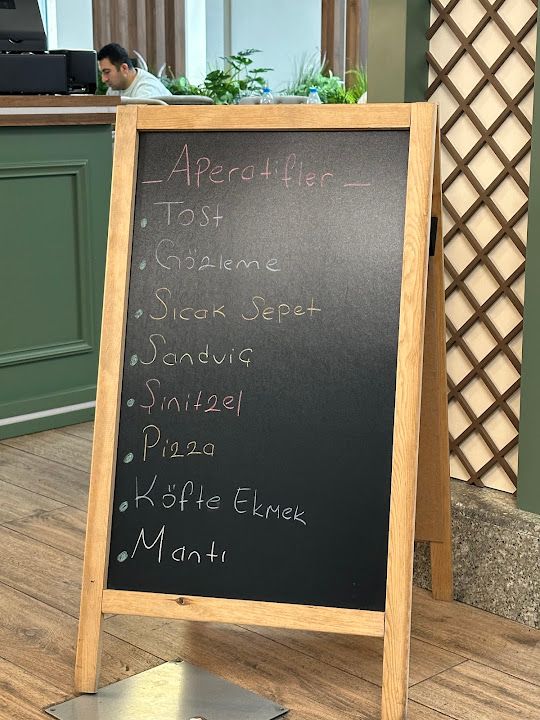 _ Aperatifler _
• Tost
• Gözleme
• Sıcak Sepet
• Sandviç
• Şinitzel
• Pizza
• Köfte Ekmek
• Mantı